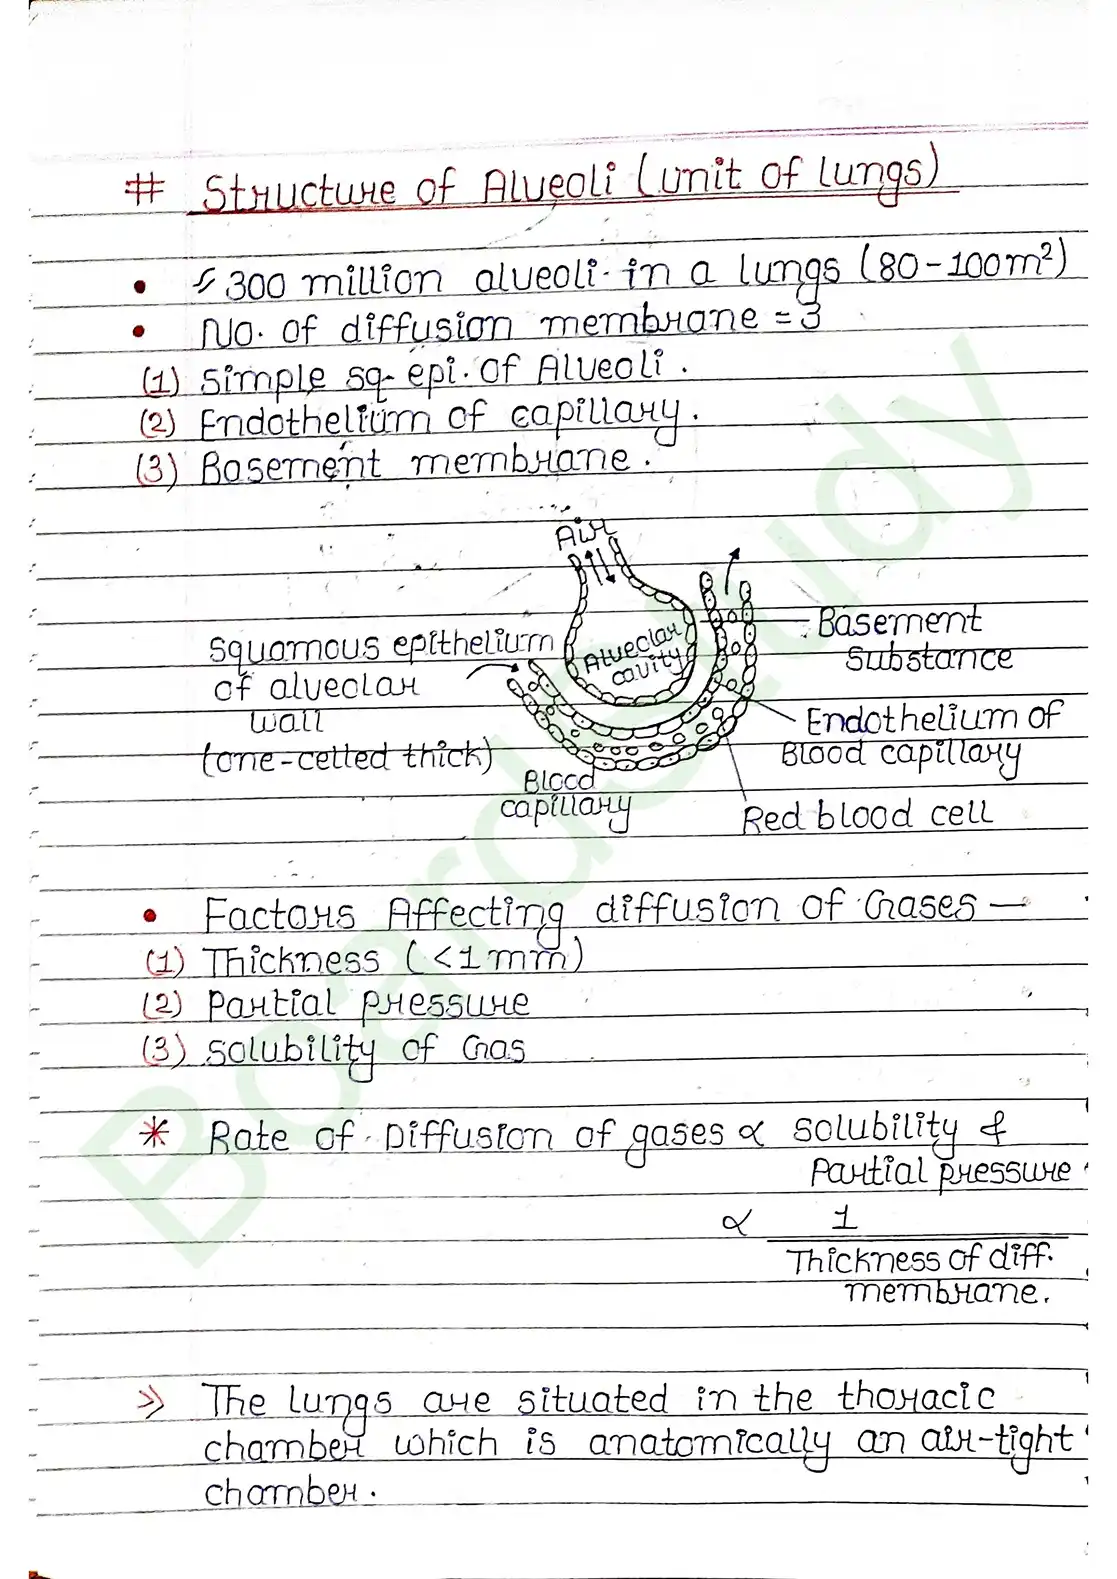 # Structure of Alveoli (unit of lungs)
• 300 million alveoli in a lungs (80-100m²)
• No. of diffusion membrane = 3
(1) Simple sq. epi. of Alveoli.
(2) Endothelium of capillary.
(3) Basement membrane.
Air
Alveolar
cavity
Squamous epithelium
of alveolar
wall
(one-celled thick)
Basement
Substance
Endothelium of
Blood capillary
Blood
capillary
Red blood cell
• Factors Affecting diffusion of Gases —
(1) Thickness (<1mm)
(2) Partial pressure
(3) Solubility of Gas
* Rate of Diffusion of gases ∝ solubility &
Partial pressure
∝ 1
Thickness of diff.
membrane.
>> The lungs are situated in the thoracic
chamber which is anatomically an air-tight
chamber.
Board Study